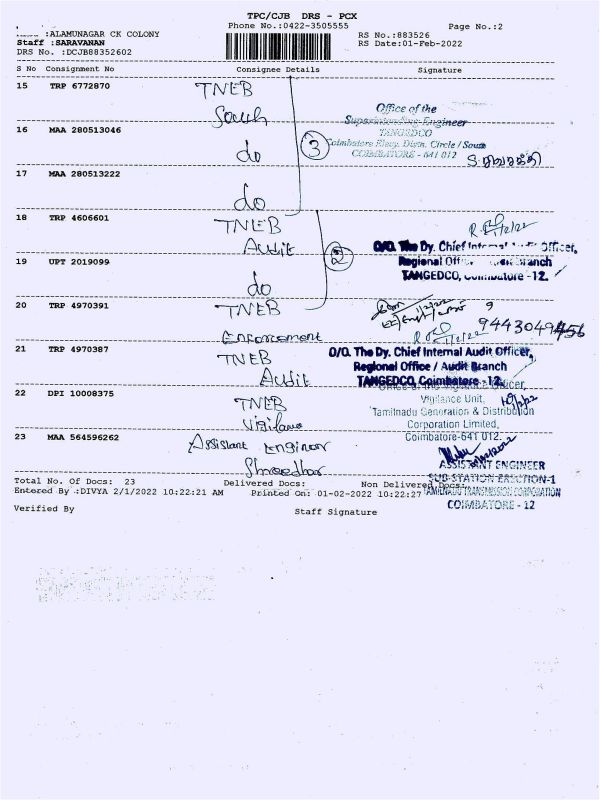 TPC/CJB DRS - PCX
Phone No.:0422-3505555
Page No.:2
:ALAMUNAGAR CK COLONY
RS No.:883526
Staff :SARAVANAN
RS Date:01-Feb-2022
DRS No. :DCJB88352602
S No Consignment No Consignee Details Signature
15 TRP 6772870 TNEB
South
Office of the
Superintending Engineer
TANGEDCO
Coimbatore Elecy. Distn. Circle / South
COIMBATORE - 641 012
16 MAA 280513046
do
3
17 MAA 280513222
do
18 TRP 4606601 TNEB
Audit
O/O. The Dy. Chief Officer,
Regional Branch
TANGEDCO, Coimbatore -12.
19 UPT 2019099
do
2
20 TRP 4970391 TNEB
Enforcement
21 TRP 4970387 TNEB
Audit
O/O. The Dy. Chief Internal Audit Officer,
Regional Office / Audit Branch
TANGEDCO, Coimbatore -12.
22 DPI 10008375 TNEB
Vigilance Unit,
Tamilnadu Generation & Distribution
Corporation Limited,
Coimbatore-641 012.
23 MAA 564596262 Assistant Enginer
ASSISTANT ENGINEER
SUB-STATION ERECTION-1
TAMILNADU TRANSMISSION CORPORATION
COIMBATORE - 12
Total No. Of Docs: 23 Delivered Docs: Non Delivered Docs:
Entered By :DIVYA 2/1/2022 10:22:21 AM Printed On: 01-02-2022 10:22:27
Verified By Staff Signature